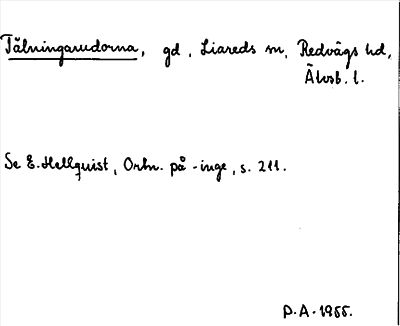 Tålningarudorna, gd, Liareds sn, Redvägs hd,
Älvsb. l.
Se E. Hellquist, Ortn. på -inge, s. 211.
P.A. 1955.